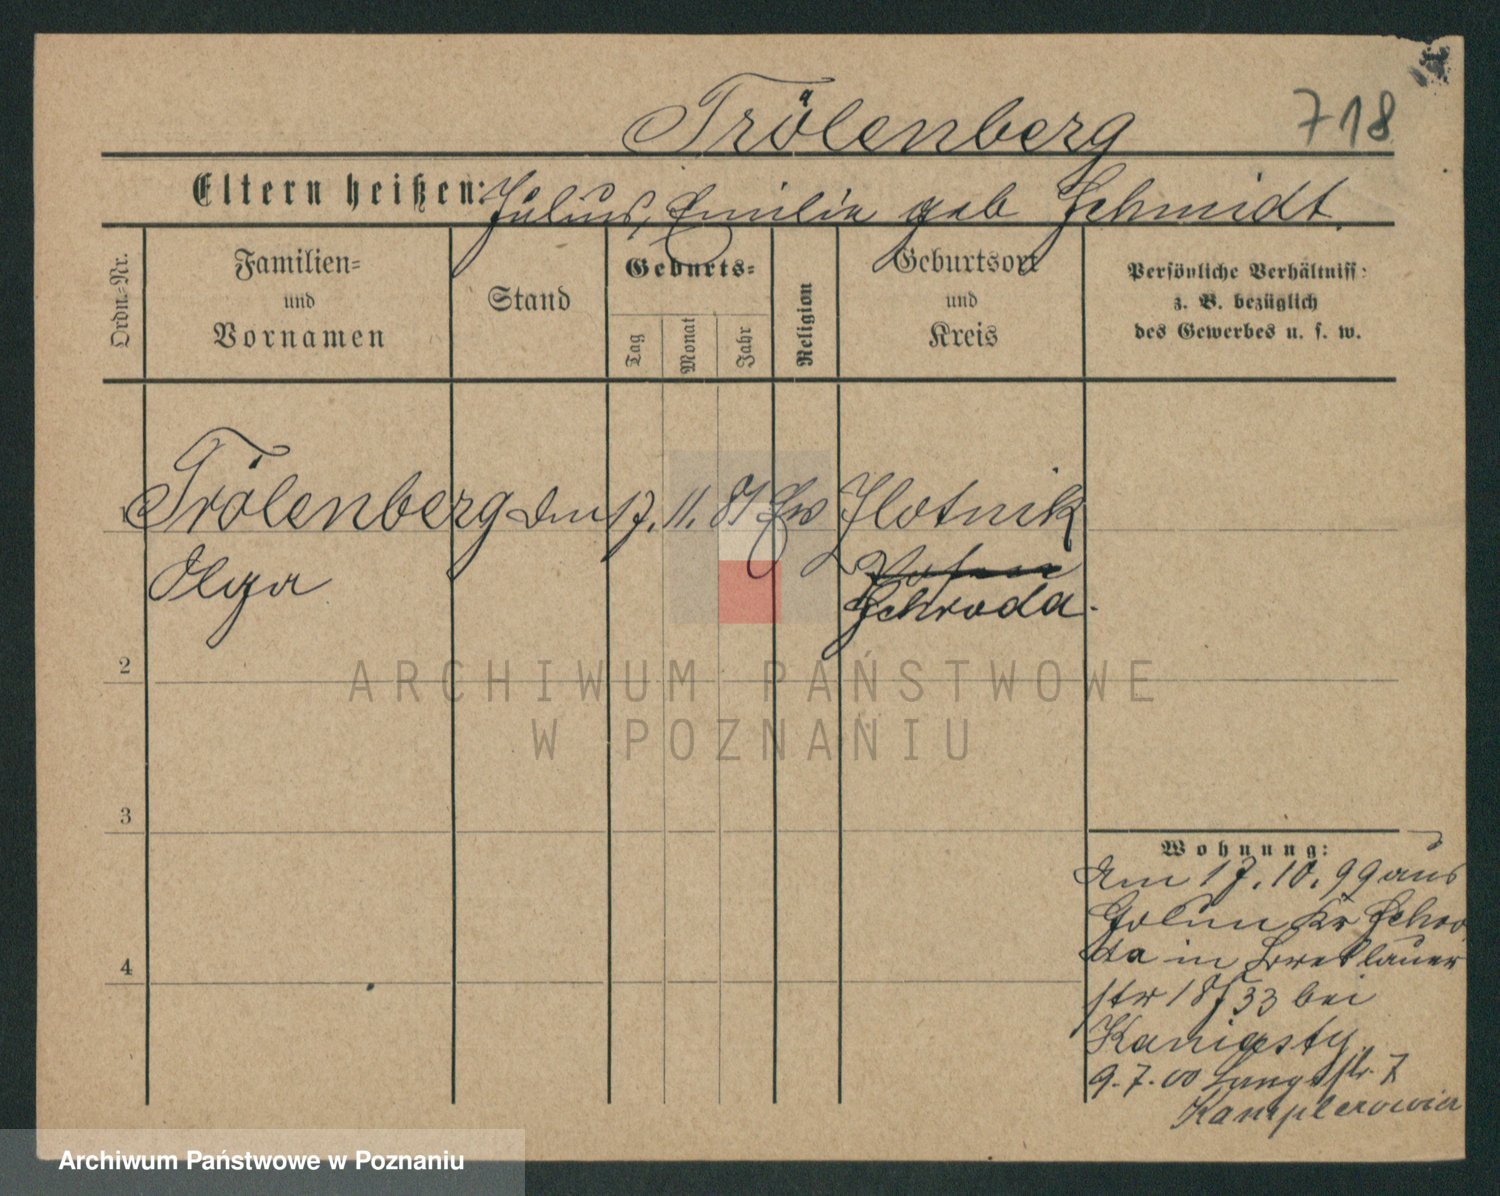 Trölenberg
718
Eltern heißen: Julius, Emilie geb Schmidt
Ordn.-Nr.
Familien-
und
Vornamen
Stand
Geburts-
Tag
Monat
Jahr
Religion
Geburtsort
und
Kreis
Persönliche Verhältniss:
z. B. bezüglich
des Gewerbes u. s. w.
1 Trölenberg 17. 11. 81 Ew Zlotnik
Olga
Posen
Schroda.
2
3
4
Wohnung:
Am 17. 10. 99 aus
Kr Schro
da in Breslauer
str 18/33 bei
9. 7. 00 Langestr. 7
ARCHIWUM PAŃSTWOWE
W POZNANIU
Archiwum Państwowe w Poznaniu